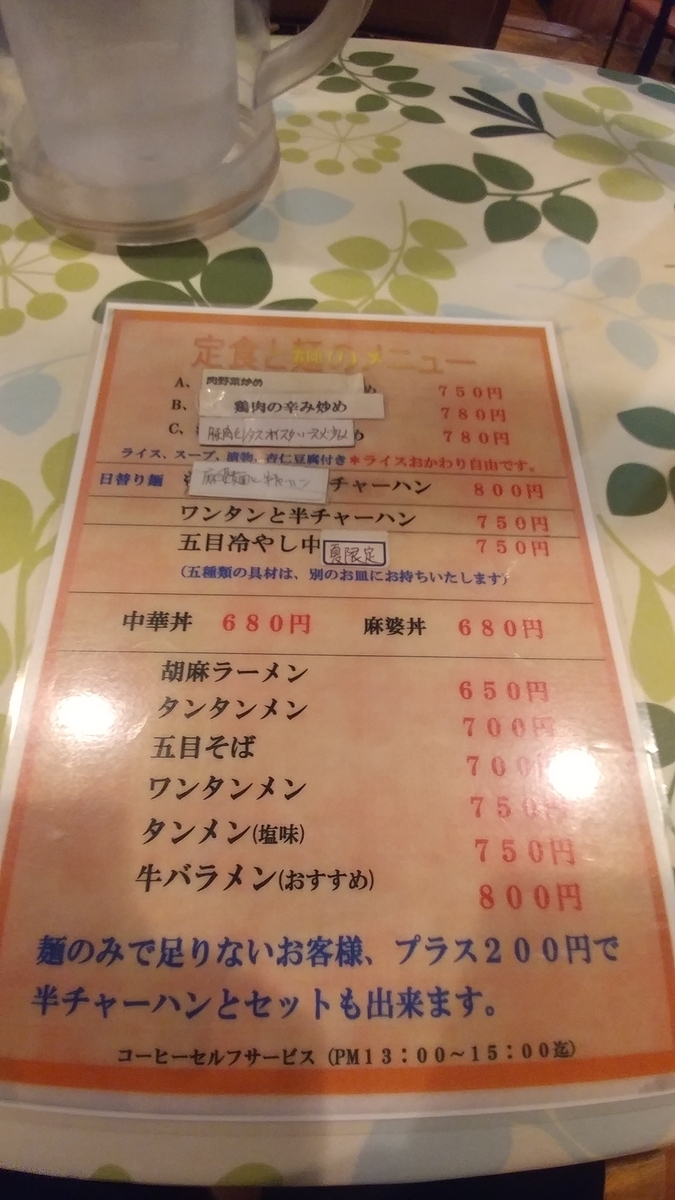 定食と麺のメニュー
A、肉野菜炒め 750円
B、鶏肉の辛み炒め 780円
C、 780円
ライス、スープ、漬物、杏仁豆腐付き＊ライスおかわり自由です。
日替り麺 麻婆麺と半チャーハン チャーハン 800円
ワンタンと半チャーハン 750円
五目冷やし中 夏限定 750円
（五種類の具材は、別のお皿にお持ちいたします）
中華丼 680円 麻婆丼 680円
胡麻ラーメン 650円
タンタンメン 700円
五目そば 700
ワンタンメン 750円
タンメン(塩味) 750円
牛バラメン(おすすめ) 800円
麺のみで足りないお客様、プラス200円で
半チャーハンとセットも出来ます。
コーヒーセルフサービス（PM13：00～15：00迄）